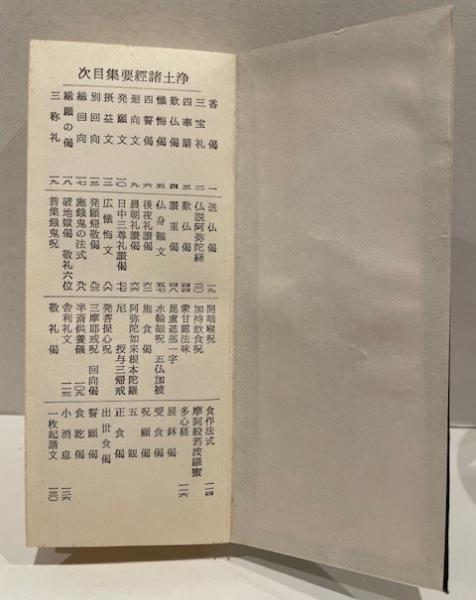 浄土諸經要集目次
香偈 一
三宝礼 二
四奉請 三
歎仏偈 四
懺悔偈 五
四誓偈 六
廻向文 九
発願文 一〇
摂益文 一二
別回向 一三
総回向 一七
総願の偈 一八
三称礼 一九
送仏偈 一九
仏説阿弥陀経 二〇
歎仏偈
讃重偈
仏身観文 五七
後夜礼讃偈 六二
晨朝礼讃偈 六六
日中三尊礼讃偈
広懺悔文
発願帰敬偈
施餓鬼の法式 九八
破地獄偈 敬礼六位
普集餓鬼呪
開咽喉呪
加持飲食呪
蒙甘露法味
毘盧遮那一字
水輪観呪 五仏加被
施食偈
阿弥陀如来根本陀羅
尼 授与三帰戒
発菩提心呪
三摩耶戒呪 回向偈
半斎供養儀 一〇九
舎利礼文 一一三
敬礼偈
食作法式 一一四
摩訶般若波羅蜜
多心経 一一六
展鉢偈
受食偈
呪願偈
五観
正食偈
出世食偈
誓願偈
食訖偈
小消息 一二六
一枚起請文 一三〇